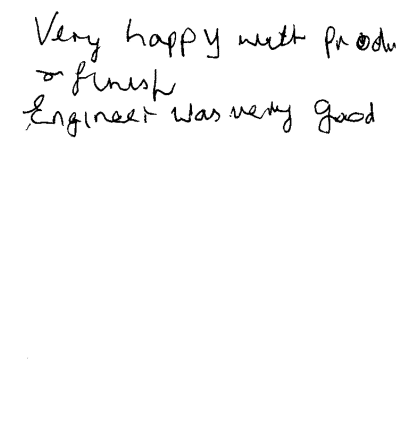 Very happy with produ
& finish
Engineer was very good